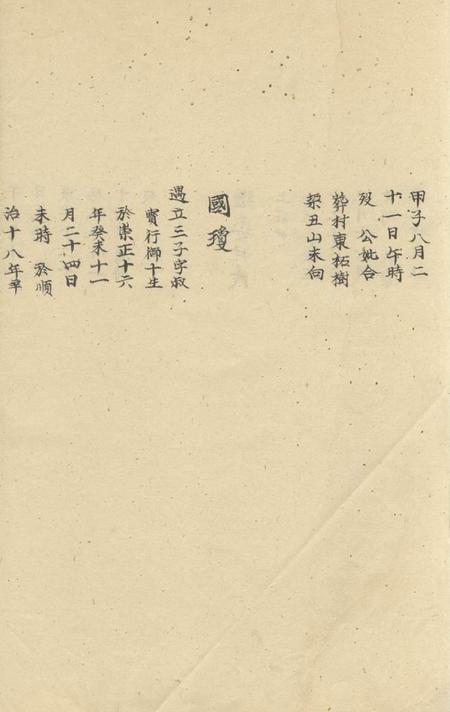 甲子八月二
十一日午時
歿 公妣合
葬村東柘樹
梁丑山未向
國瓊
遇立三子字叔
寳行御十生
於崇正十六
年癸未十一
月二十四日
未時 於順
治十八年辛